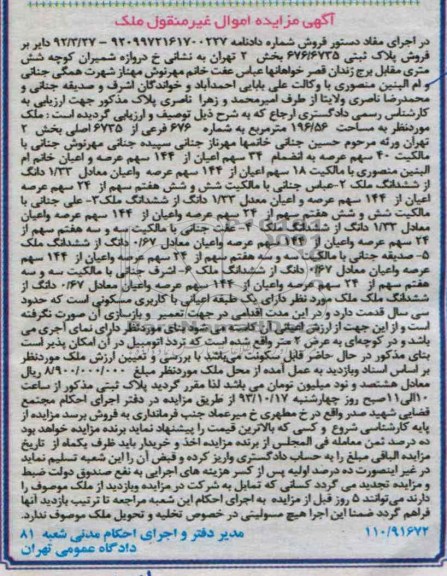 آگهی مزایده اموال غیرمنقول ملک
در اجرای مفاد دستور فروش شماره دادنامه ۹۲۰۹۹۷۲۱۶۱۷۰۰۲۲۷ – ۹۲/۳/۲۷ دایر بر
فروش پلاک ثبتی ۶۷۶/۶۷۳۵ بخش ۲ تهران به نشانی خ دروازه شمیران کوچه شش
متری مقابل برج زندان قصر خواهانها عباس عفت خانم مهرنوش مهناز شهرت همگی جنانی
و ام البنین منصوری با وکالت علی بابایی احمدآباد و خواندگان اشرف و صدیقه جنانی و
محمدرضا ناصری ولایتا از طرف امیرمحمد و زهرا ناصری پلاک مذکور جهت ارزیابی به
کارشناس رسمی دادگستری ارجاع که به شرح ذیل توصیف و ارزیابی گردیده است : ملک
موردنظر به مساحت ۱۹۶/۵۶ مترمربع به شماره ۶۷۶ فرعی از ۶۷۳۵ اصلی بخش ۲
تهران ورثه مرحوم حسین جنانی خانمها مهرناز جنانی سپیده جنانی مهرنوش جنانی با
مالکیت ۴۰ سهم عرصه به انضمام ۳۴ سهم اعیان از ۱۴۴ سهم عرصه و اعیان خانم ام
البنین منصوری با مالکیت ۱۸ سهم اعیان از ۱۴۴ سهم عرصه واعیان معادل ۱/۳۳ دانگ
از ششدانگ ملک ۲-عباس جنانی با مالکیت شش و شش هفتم سهم از ۲۴ سهم عرصه
اعیان از ۱۴۴ سهم عرصه و اعیان معدل ۱/۳۳ دانگ از ششدانگ ملک۳- علی جنانی با
مالکیت شش و شش هفتم سهم از ۲۴ سهم عرصه واعیان از ۱۴۴ سهم عرصه واعیان
معادل ۱/۳۳ دانگ از ششدانگ ملک ۴-عفت جنانی با مالکیت سه و سه هفتم سهم از
۲۴ سهم عرصه واعیان از ۱۴۴ سهم عرصه واعیان معادل ۰/۶۷ دانگ از ششدانگ ملک
۵- صدیقه جنانی با مالکیت سه و سه هفتم سهم از ۲۴ سهم عرصه واعیان از ۱۴۴ سهم
عرصه واعیان معادل ۰/۶۷ دانگ از ششدانگ ملک ۶- اشرف جنانی با مالکیت سه و سه
هفتم سهم از ۲۴ سهم عرصه واعیان از ۱۴۴ سهم عرصه واعیان معادل ۰/۶۷ دانگ از
ششدانگ ملک ملک مورد نظر دارای یک طبقه اعیانی با کاربری مسکونی است که حدود
سی سال قدمت دارد و در این مدت اقدامی در جهت تعمیر و بازسازی آن صورت نگرفته
است و از این جهت از ارزش اعیانی آن کاسته شده است بنای موردنظر دارای نمای آجری می
باشد و در کوچه‌ای به عرض ۲ متر واقع شده است که تردد اتومبیل در آن امکان پذیر است
بنای مذکور در حال حاضر قابل سکونت می‌باشد با بررسی و تعیین ارزش ملک موردنظر
بر اساس اسناد وبازدید به عمل آمده از محل ملک موردنظر مبلغ ۸/۹۰۰/۰۰۰/۰۰۰ ریال
معادل هشتصد و نود میلیون تومان می باشد لذا مقرر گردید پلاک ثبتی مذکور از ساعت
۱۰الی۱۱صبح روز چهارشنبه ۹۳/۱۰/۱۷ از طریق مزایده در دفتر اجرای احکام مجتمع
قضایی شهید صدر واقع در خ مطهری خ میرعماد جنب فرمانداری به فروش برسد مزایده از
پایه کارشناسی شروع و کسی که بالاترین قیمت را پیشنهاد نماید برنده مزایده خواهد بود
ده درصد ثمن معامله فی المجلس از برنده مزایده اخذ و خریدار باید ظرف یکماه از تاریخ
مزایده الباقی مبلغ را به حساب دادگستری واریز کرده و قبض آن را این شعبه تسلیم نماید
در غیر اینصورت ده درصد اولیه پس از کسر هزینه های اجرایی به نفع صندوق دولت ضبط
و مزایده تجدید می گردد کسانی که تمایل به شرکت در مزایده وبازدید از ملک موصوف را
دارند می‌توانند ۵ روز قبل از مزایده به اجرای احکام این شعبه مراجعه تا ترتیب بازدید آنها
فراهم گردد ضمنا این اجرا هیچ مسولیتی در خصوص تخلیه و تحویل ملک موصوف ندارد.
۱۱۰/۹۱۶۷۲ مدیر دفتر و اجرای احکام مدنی شعبه ۸۱
دادگاه عمومی تهران